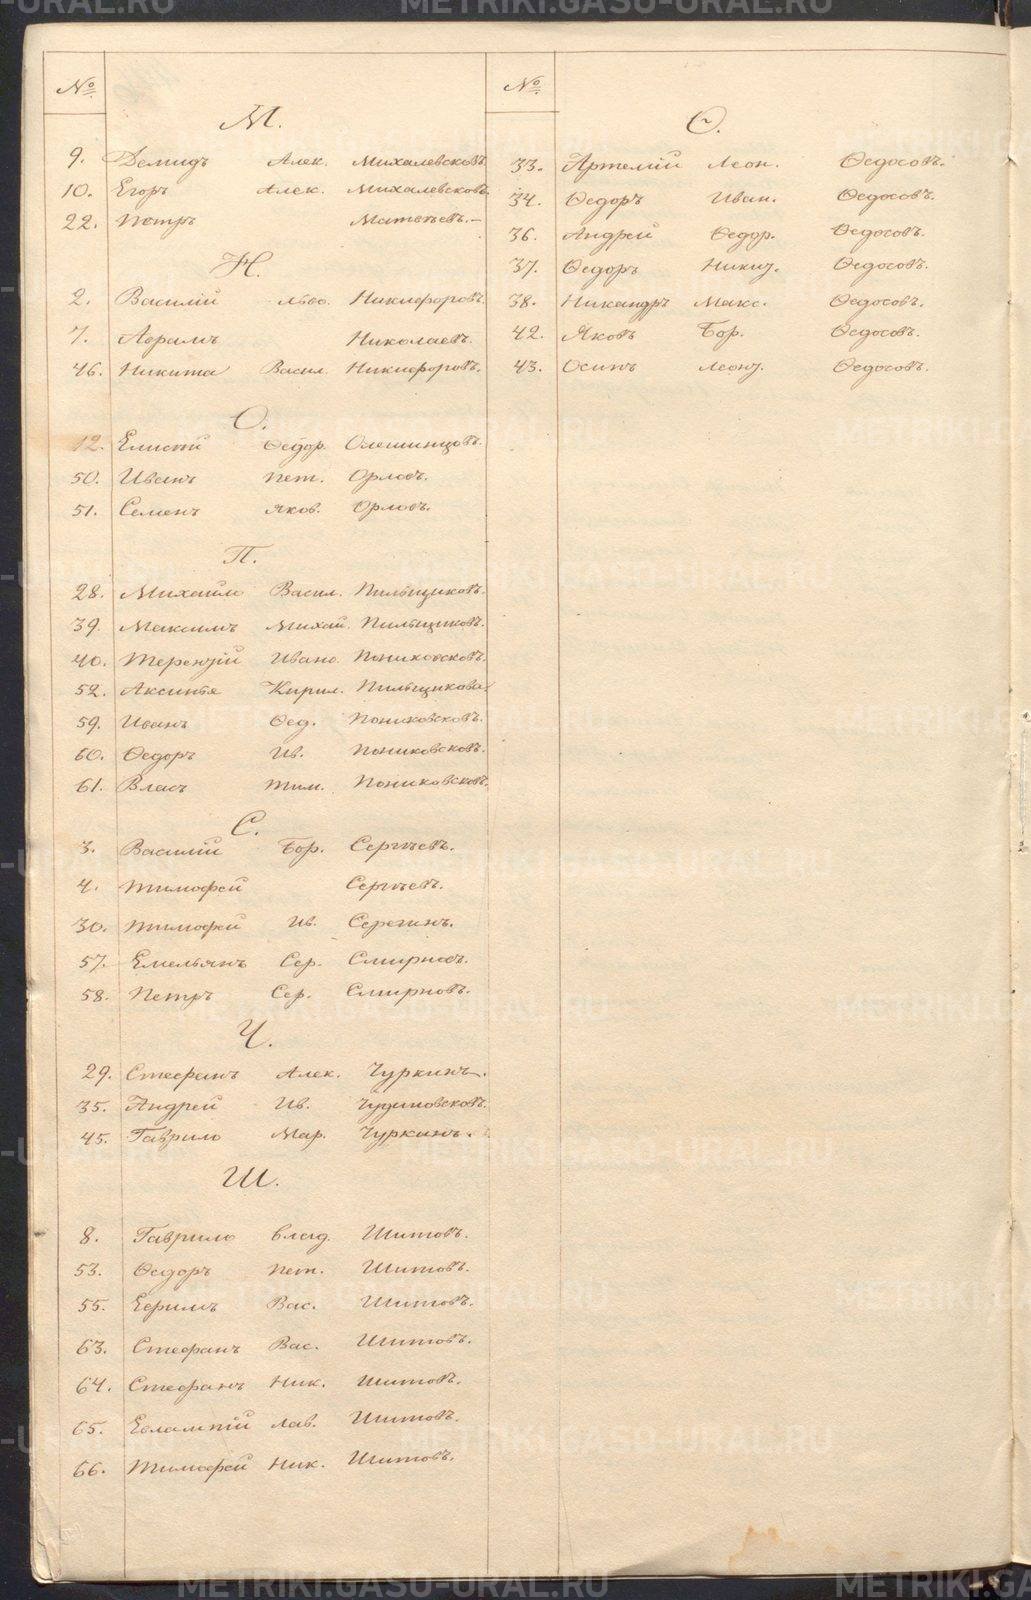 №
М.
9. Демидъ Алек. Михалевсковъ
10. Егоръ Алек. Михалевсковъ
22. Петръ Матвѣевъ.
Н.
2. Василій Льво. Никифоровъ.
7. Аврамъ Николаевъ.
46. Никита Васил. Никифоровъ.
О.
12. Елисѣй Ѳедор. Олешинцовъ.
50. Иванъ Пет. Орловъ.
51. Семенъ Яков. Орловъ.
П.
28. Михайло Васил. Пильщиковъ.
39. Максимъ Михай. Пильщиковъ.
40. Терентій Ивано. Пониковсковъ.
52. Аксинья Кирил. Пильщикова.
59. Иванъ Ѳед. Пониковсковъ.
60. Ѳедоръ Ив. Пониковсковъ.
61. Власъ Тим. Пониковсковъ.
С.
3. Василій Бор. Сергѣевъ.
4. Тимофей Сергѣевъ.
30. Тимофей Ив. Серегинъ.
57. Емельянъ Сер. Смирновъ.
58. Петръ Сер. Смирновъ.
Ч.
29. Стефанъ Алек. Чуркинъ.
35. Андрей Ив. Чудиновсковъ.
45. Гаврило Мар. Чуркинъ.
Ш.
8. Гаврило Влад. Шитовъ.
53. Ѳедоръ Пет. Шитовъ.
55. Ефимъ Вас. Шитовъ.
63. Стефанъ Вас. Шитовъ.
64. Стефанъ Ник. Шитовъ.
65. Евлампій Лав. Шитовъ.
66. Тимофей Ник. Шитовъ.
№
Ѳ.
33. Артемій Леон. Ѳедосовъ.
34. Ѳедоръ Иван. Ѳедосовъ.
36. Андрей Ѳедор. Ѳедосовъ.
37. Ѳедоръ Никит. Ѳедосовъ.
38. Никандръ Макс. Ѳедосовъ.
42. Яковъ Бор. Ѳедосовъ.
43. Осипъ Леонт. Ѳедосовъ.
METRIKI.GASO-URAL.RU